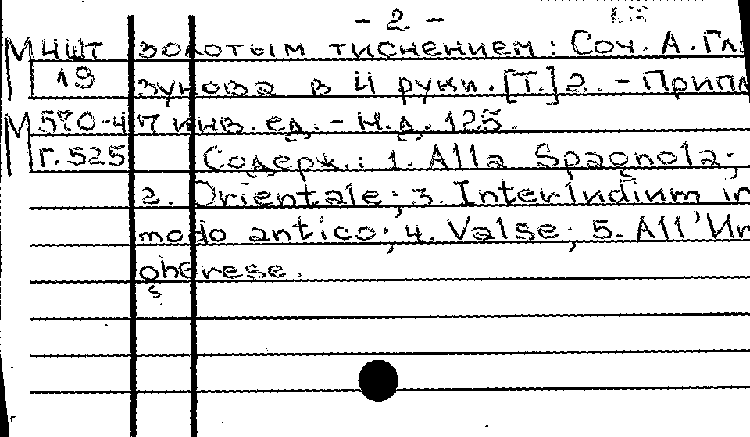 - 2 -
М ЧШТ золотым тиснением: Соч. А. Гла
19 зунова в 4 руки. [Т.] 2. - Припл
М 570-4 7 инв. ед. - Н.д. 125.
Г. 525 Содерж.: 1. Alla Spagnola;
2. Orientale; 3. Interludium in
modo antico; 4. Valse; 5. All'Un
gherese.